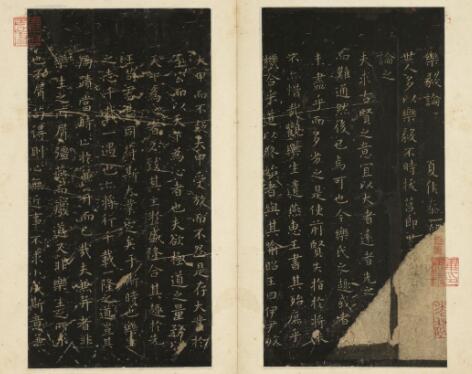 樂毅論 夏侯泰
世人多以樂毅不時拔莒即
論之
夫求古賢之意宜以大者遠者先之
而難通然後已焉可也今樂氏之趣或者
未盡乎而多劣之是使前賢失指於將來
不亦惜哉觀樂生遺燕惠王書其殆庶乎
機合乎道以終始者與其喻昭王曰伊尹放
大甲而不疑大甲受放而不怨是存大業於
至公而以天下為心者也夫欲極道之量務
天下為心者必致其主於盛隆合其趣於先
王苟君臣同符斯大業定矣于斯時也樂生
之志千載一遇也亦將行千載一隆之道豈其
局蹟當時止於兼并而已哉夫兼并者非
樂生之所屑彊燕而廢道又非樂生之所求
也不屑苟得則心無近事不求小成斯意兼